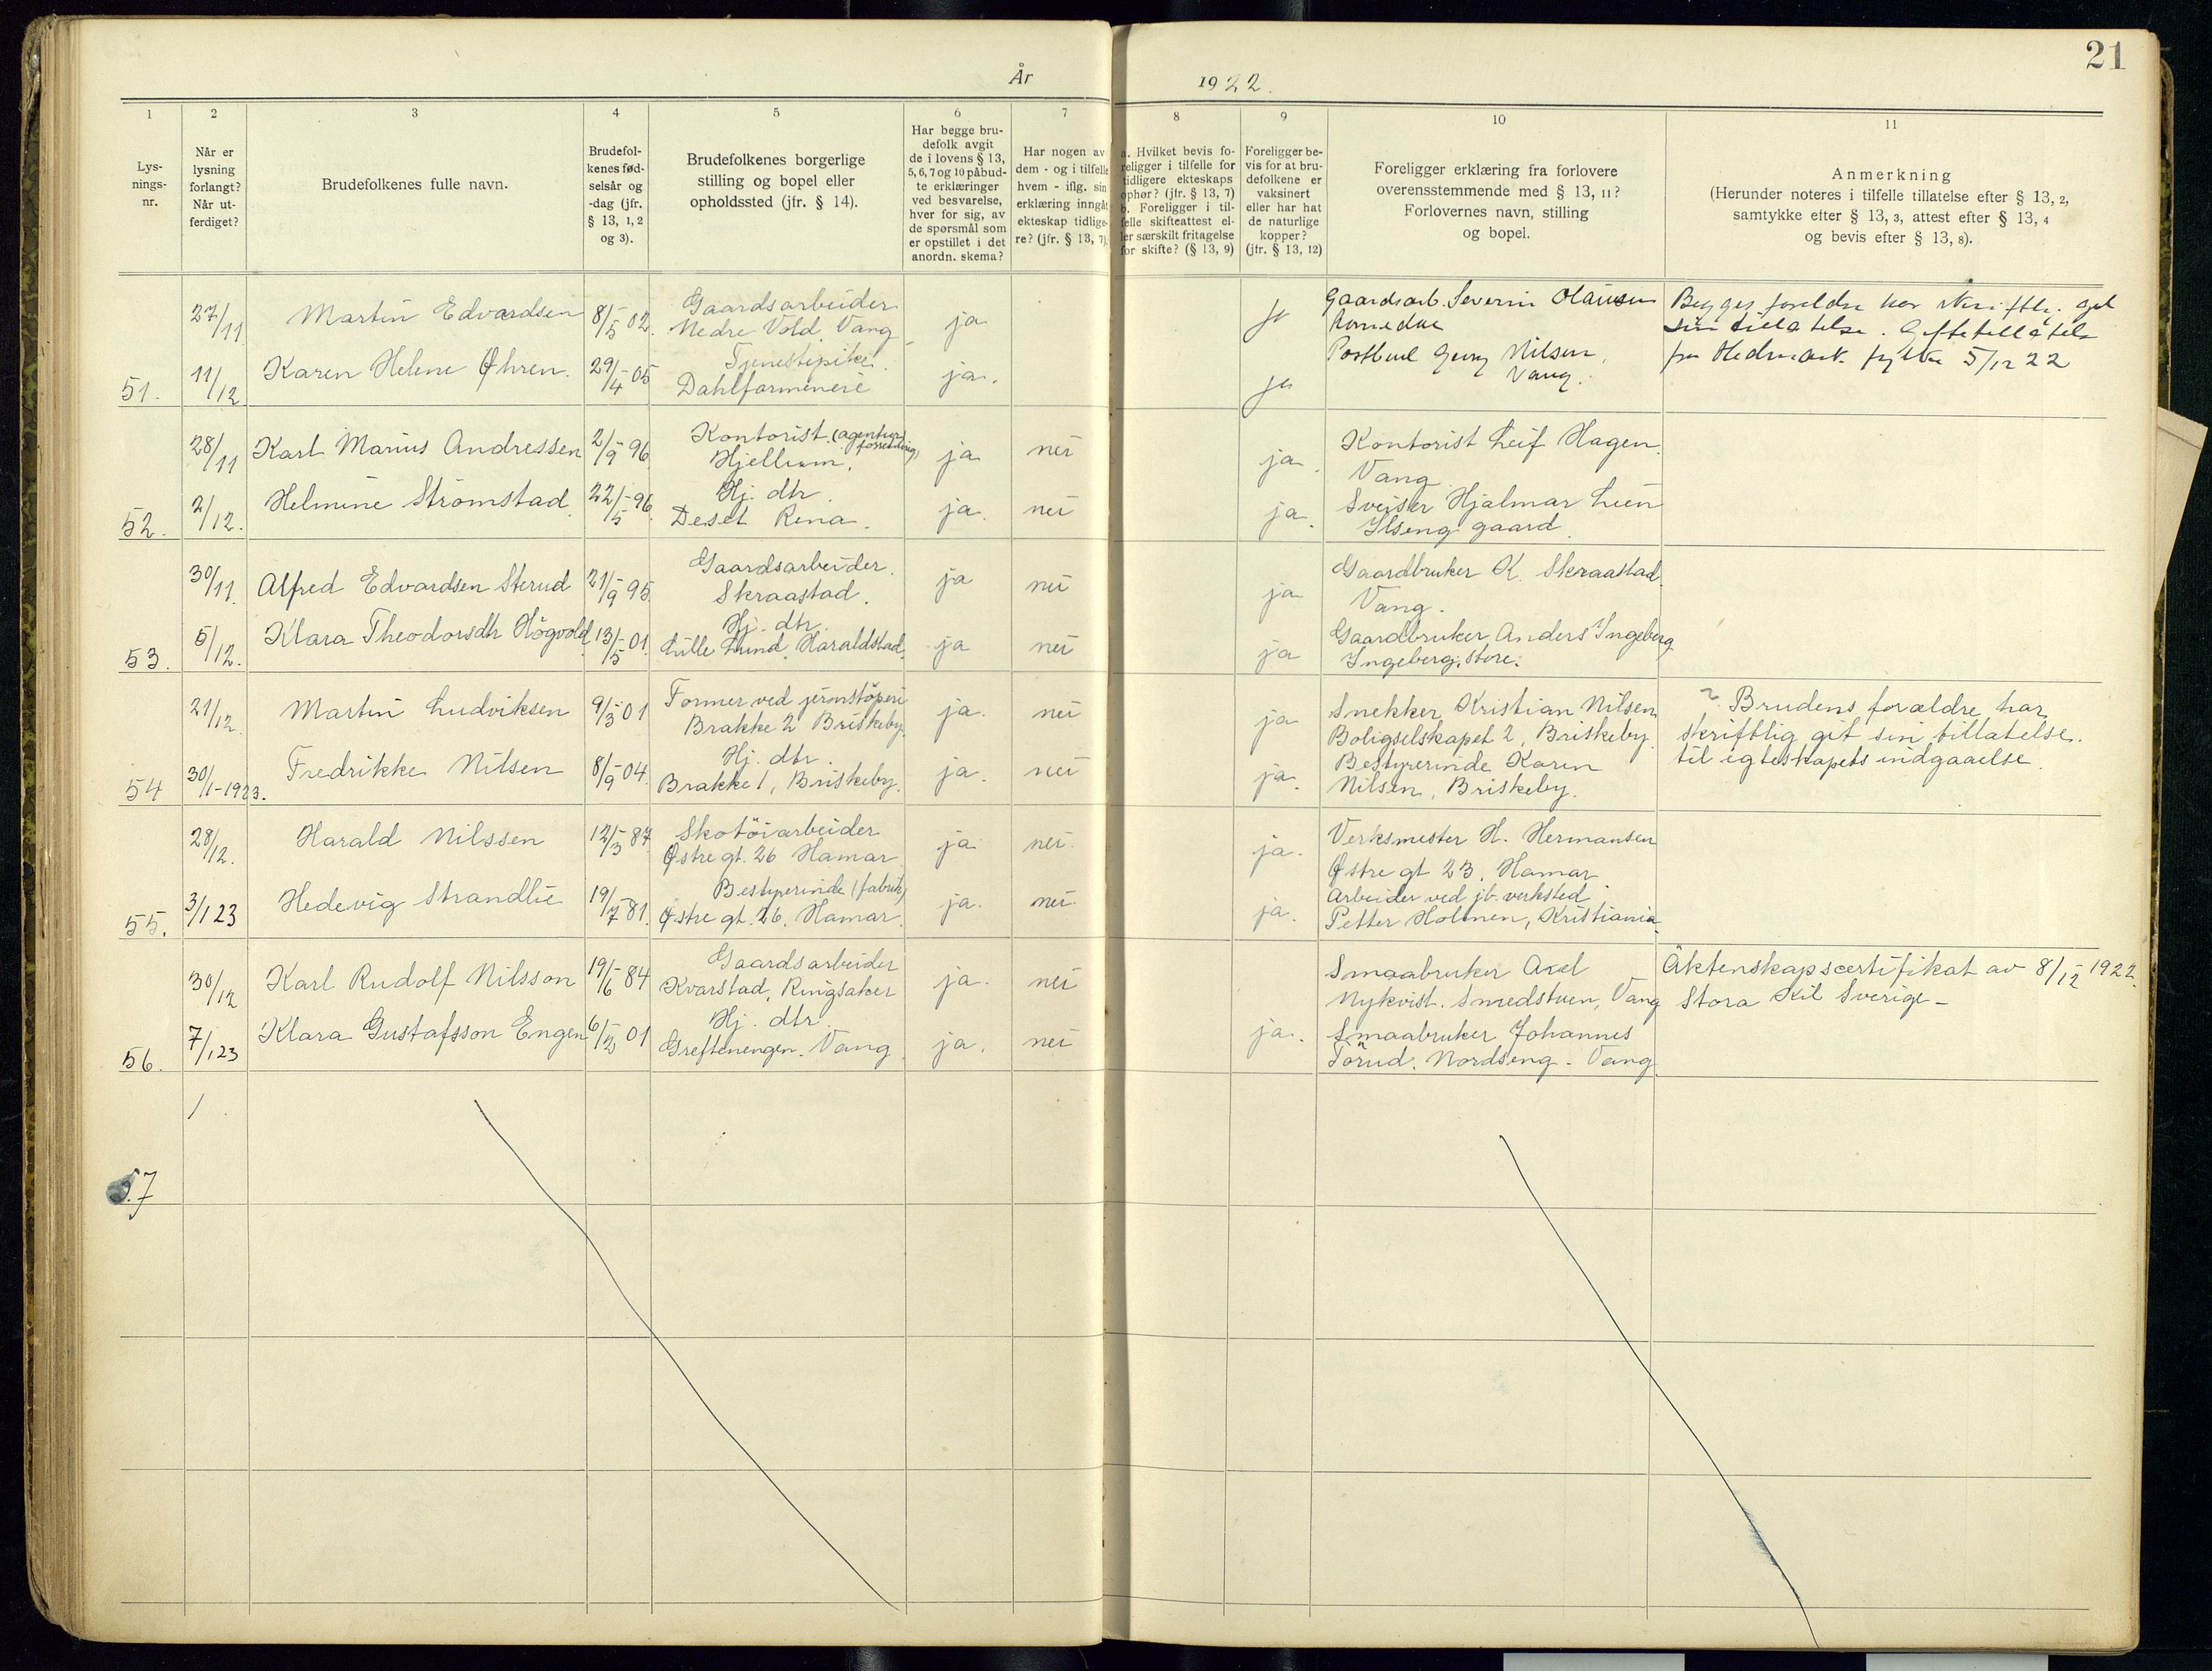 21
År 1922.
1 2 3 4 5 6 7 8 9 10 11
Lys-
nings-
nr.
Når er
lysning
forlangt?
Når ut-
ferdiget?
Brudefolkenes fulle navn.
Brudefol-
kenes fød-
selsår og
-dag (jfr.
§ 13, 1, 2
og 3).
Brudefolkenes borgerlige
stilling og bopel eller
opholdssted (jfr. § 14).
Har begge bru-
defolk avgit
de i lovens § 13,
5, 6, 7 og 10 påbud-
te erklæringer
ved besvarelse,
hver for sig, av
de spørsmål som
er opstillet i det
anordn. skema?
Har nogen av
dem - og i tilfelle
hvem - iflg. sin
erklæring inngåt
ekteskap tidlige-
re? (jfr. § 13, 7).
a. Hvilket bevis fo-
religger i tilfelle for
tidligere ekteskaps
ophør? (jfr. § 13, 7)
b. Foreligger i til-
felle skifteattest el-
ler særskilt fritagelse
for skifte? (§ 13, 9)
Foreligger be-
vis for at bru-
defolkene er
vaksinert
eller har hat
de naturlige
kopper?
(jfr. § 13, 12)
Foreligger erklæring fra forlovere
overensstemmende med § 13, 11?
Forlovernes navn, stilling
og bopel.
Anmerkning
(Herunder noteres i tilfelle tillatelse efter § 13, 2,
samtykke efter § 13, 3, attest efter § 13, 4
og bevis efter § 13, 8).
51.
27/11
11/12
Martin Edvardsen
Karen Helene Øhren.
8/5 02
29/4 05
Gaardsarbeider
Nedre Vold. Vang
Tjenestepike
Dahlfarmeneie
ja
ja.
ja
ja
Gaardsarb. Severin Olausen
Romedal
Postbud Georg Nilsen,
Vang.
Begges foreldre har skriftl. git
sin tillatelse. Giftetillatelse
fra Hedmark fylke 5/12 22
52.
28/11
2/12.
Karl Marius Andressen
Helmine Strömstad
2/9 96
22/5 96.
Kontorist. (agentur
forretning)
Hjellum.
Hj. dtr.
Deset Rena.
ja nei
ja. nei
ja.
ja.
Kontorist Leif Hagen.
Vang
Sveiser Hjalmar Lien
Ilseng gaard.
53.
30/11.
5/12.
Alfred Edvardsen Sterud
Klara Theodorsdtr Högvold
21/9 95.
13/5 01.
Gaardsarbeider.
Skraastad.
Hj. dtr.
Lille Lund. Haraldstad.
ja nei
ja nei
ja
ja
Gaardbruker K. Skraastad.
Vang.
Gaardbruker Anders Ingeberg
Ingeberg, store.
54
21/12.
30/1-1923.
Martin Ludviksen
Fredrikke Nilsen
9/3 01
8/9 04.
Former ved jernstöperi
Brakke 2 Briskeby.
Hj. dtr.
Brakke 1, Briskeby.
ja. nei
ja. nei
ja
ja.
Snekker Kristian Nilsen
Boligselskapet 2, Briskeby.
Bestyrerinde Karen
Nilsen, Briskeby.
Brudens forældre har
skriftlig git sin tillatelse.
til egteskapets indgaaelse.
55.
28/12.
3/1 23
Harald Nilssen
Hedevig Strandlie
12/3 87
19/7 81.
Skotöiarbeider
Østre gt. 26 Hamar
Bestyrerinde (fabrik)
Østre gt. 26. Hamar.
ja. nei.
ja. nei.
ja.
ja.
Verksmester H. Hermansen
Østre gt 23. Hamar
Arbeider ved jb. verksted
Petter Holmen, Kristiania.
56.
30/12
7/1 23
Karl Rudolf Nilsson
Klara Gustafsson Engen
19/6 84
01
Gaardsarbeider
Kvarstad, Ringsaker
Hj. dtr.
Greftenengen. Vang.
ja. nei
ja. nei
ja.
Smaabruker Axel
Nykvist. Smedstuen, Vang
Smaabruker Johannes
Törud. Nordseng - Vang.
Äktenskapscertifikat av 8/12 1922.
Stora Kil Sverige -
57
/